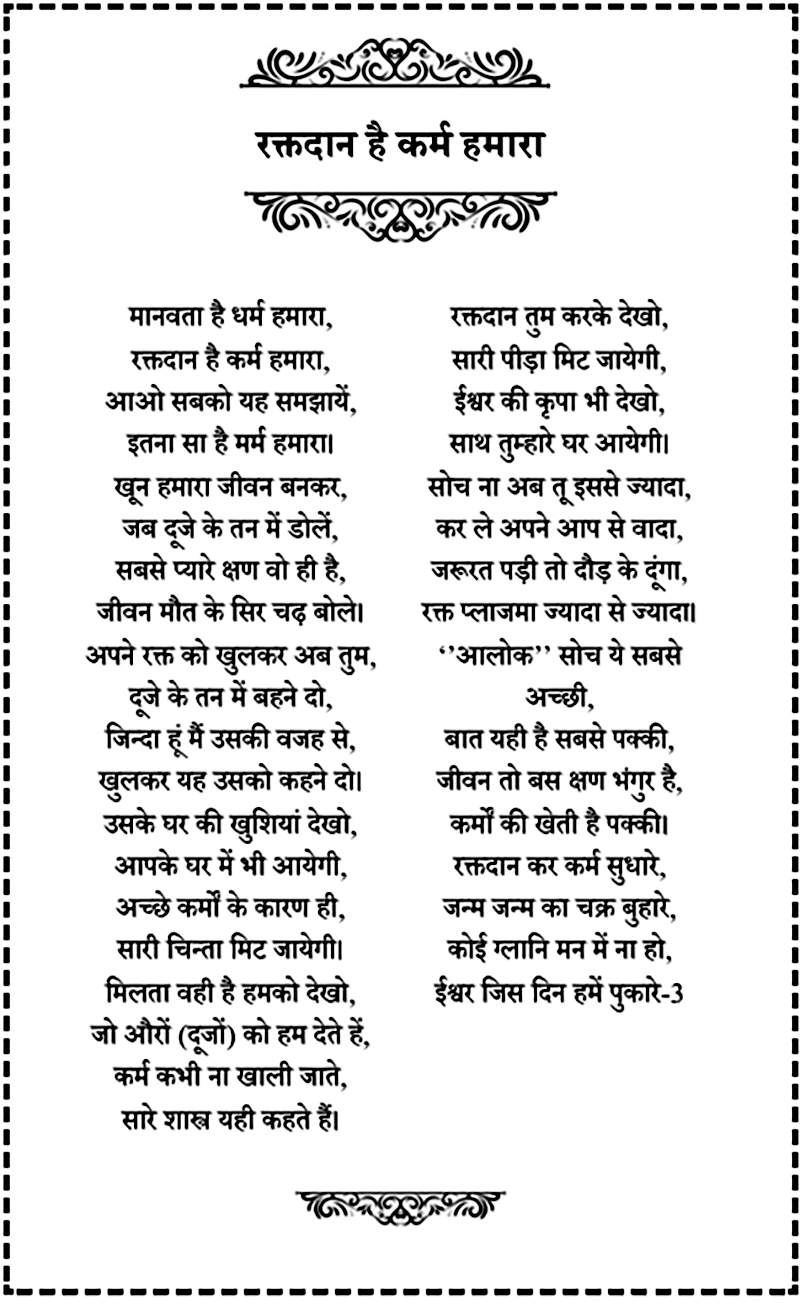 रक्तदान है कर्म हमारा
मानवता है धर्म हमारा,
रक्तदान है कर्म हमारा,
आओ सबको यह समझायें,
इतना सा है मर्म हमारा।
खून हमारा जीवन बनकर,
जब दूजे के तन में डोलें,
सबसे प्यारे क्षण वो ही है,
जीवन मौत के सिर चढ़ बोले।
अपने रक्त को खुलकर अब तुम,
दूजे के तन में बहने दो,
जिन्दा हूं मैं उसकी वजह से,
खुलकर यह उसको कहने दो।
उसके घर की खुशियां देखो,
आपके घर में भी आयेगी,
अच्छे कर्मों के कारण ही,
सारी चिन्ता मिट जायेगी।
मिलता वही है हमको देखो,
जो औरों (दूजों) को हम देते हें,
कर्म कभी ना खाली जाते,
सारे शास्त्र यही कहते हैं।
रक्तदान तुम करके देखो,
सारी पीड़ा मिट जायेगी,
ईश्वर की कृपा भी देखो,
साथ तुम्हारे घर आयेगी।
सोच ना अब तू इससे ज्यादा,
कर ले अपने आप से वादा,
जरूरत पड़ी तो दौड़ के दूंगा,
रक्त प्लाजमा ज्यादा से ज्यादा।
‘’आलोक’’ सोच ये सबसे
अच्छी,
बात यही है सबसे पक्की,
जीवन तो बस क्षण भंगुर है,
कर्मों की खेती है पक्की।
रक्तदान कर कर्म सुधारे,
जन्म जन्म का चक्र बुहारे,
कोई ग्लानि मन में ना हो,
ईश्वर जिस दिन हमें पुकारे-3